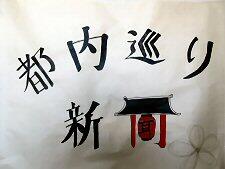 都内巡り
新聞